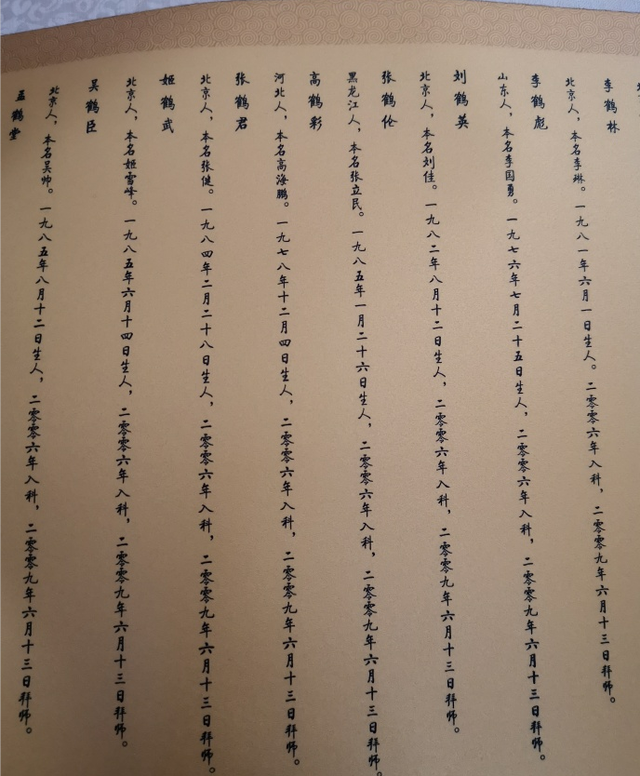 李鹤林
北京人，本名李琳。一九八一年六月一日生人。二零零六年入科，二零零九年六月十三日拜师。
李鹤彪
山东人，本名李国勇。一九七六年七月二十五日生人，二零零六年入科，二零零九年六月十三日拜师。
刘鹤英
北京人，本名刘佳。一九八二年八月十二日生人，二零零六年入科，二零零九年六月十三日拜师。
张鹤伦
黑龙江人，本名张立民。一九八五年一月二十六日生人，二零零六年入科，二零零九年六月十三日拜师。
高鹤彩
河北人，本名高海鹏。一九七八年十二月四日生人，二零零六年入科，二零零九年六月十三日拜师。
张鹤君
北京人，本名张健。一九八四年二月二十八日生人，二零零六年入科，二零零九年六月十三日拜师。
姬鹤武
北京人，本名姬雪峰。一九八五年六月十四日生人，二零零六年入科，二零零九年六月十三日拜师。
吴鹤臣
北京人，本名吴帅。一九八五年八月十二日生人，二零零六年入科，二零零九年六月十三日拜师。
孟鹤堂